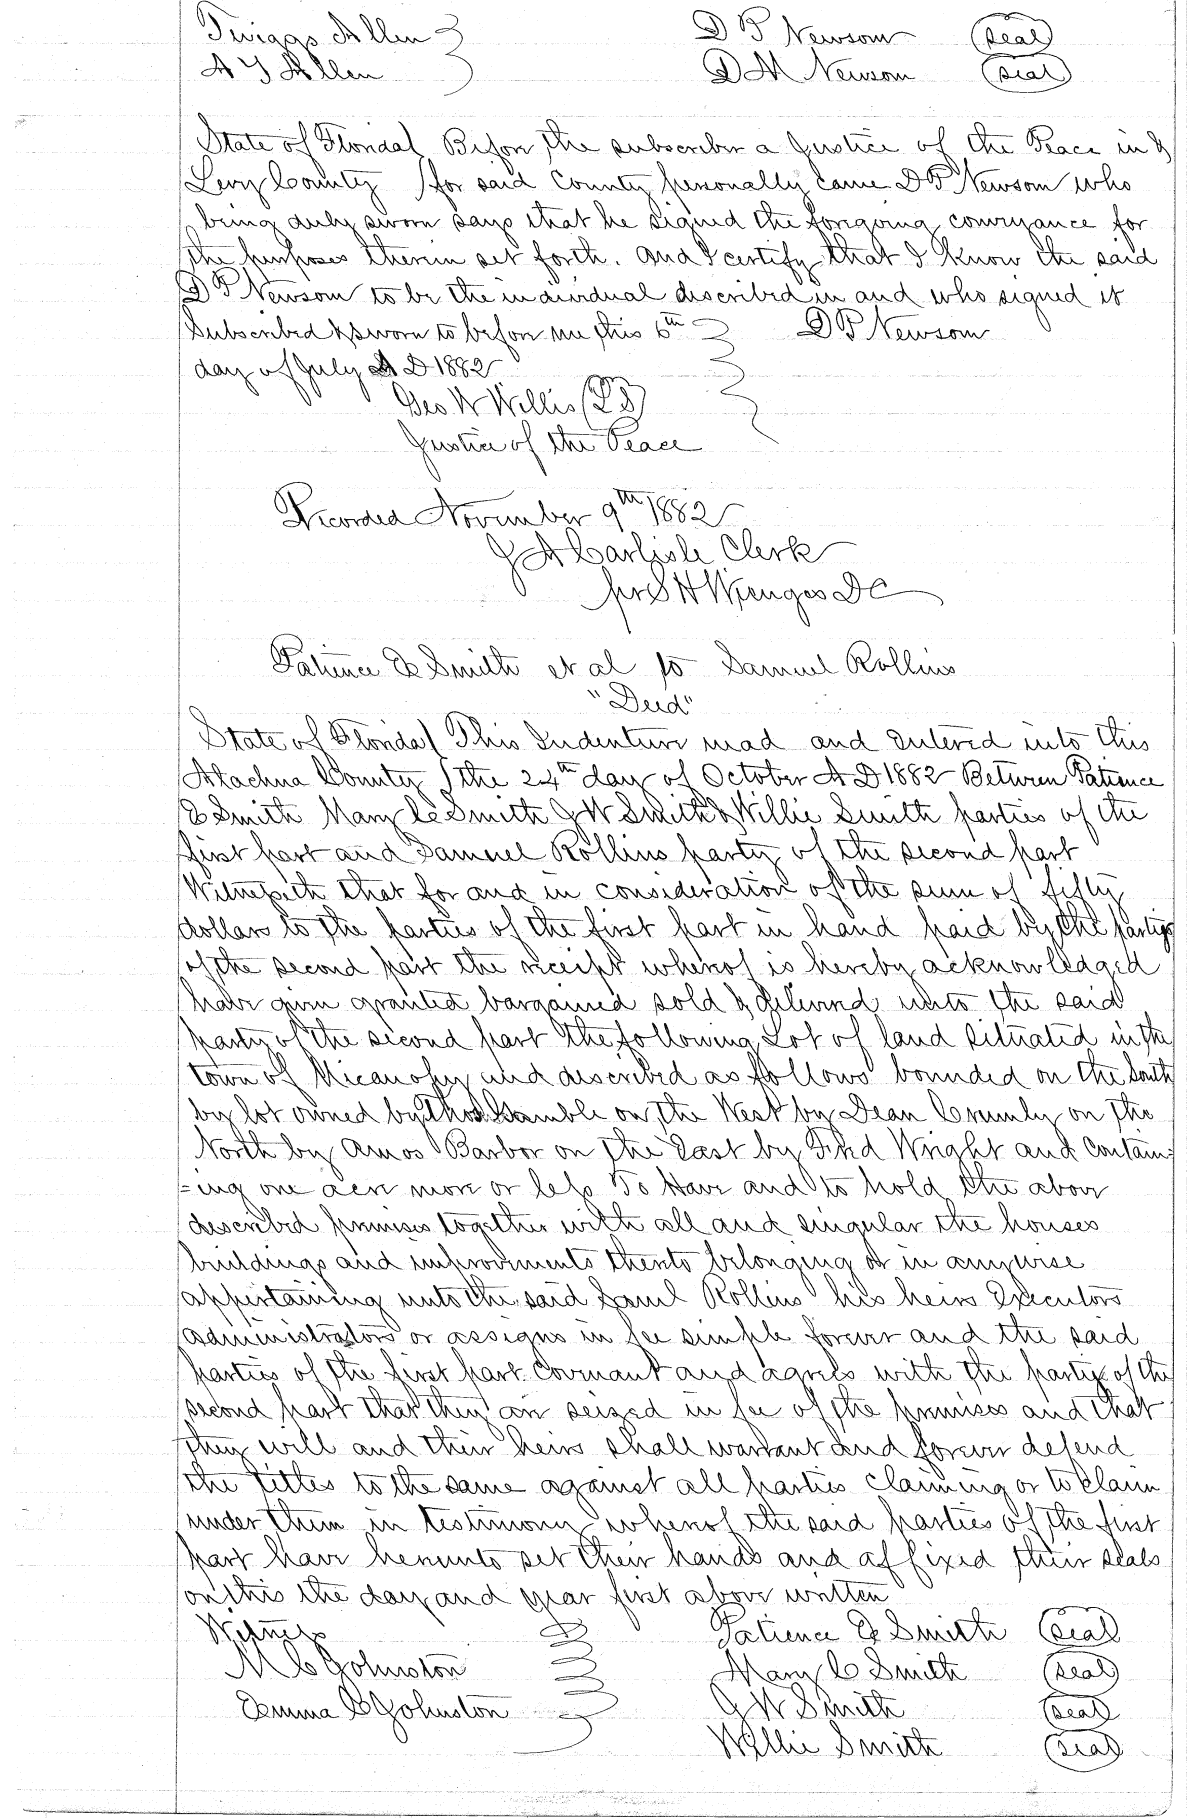 Twiggs Allen D P Newsom (seal)
A Y Allen D M Newsom (seal)
State of Florida } Before the subscriber a Justice of the Peace in &
Levy County } for said County personally came D P Newsom who
being duly sworn says that he signed the forgoing conveyance for
the purposes therein set forth. And I certify that I know the said
D P Newsom to be the individual described in and who signed it
Subscribed & sworn to before me this 6th D P Newsom
day of July A D 1882
Geo W Willis (L S)
Justice of the Peace
Recorded November 9th 1882
J A Carlisle Clerk
pr S H Wienges D C
Patience E Smith et al to Samuel Rollins
"Deed"
State of Florida } This Indenture mad and entered into this
Alachua County } the 24th day of October A D 1882 Between Patience
E Smith Mary C Smith G W Smith & Willie Smith parties of the
first part and Samuel Rollins party of the second part
Witnesseth that for and in consideration of the sum of fifty
dollars to the parties of the first part in hand paid by the parties
of the second part the receipt whereof is hereby acknowledged
have given granted bargained sold & delivered unto the said
party of the second part the following Lot of land situated in the
town of Micanopy and described as follows bounded on the South
by lot owned by Thos Gamble on the West by Dean Crumly on the
North by Amos Barbor on the East by Fred Wright and contain-
=ing one acre more or less To Have and to hold the above
described premises together with all and singular the houses
buildings and improvements thereto belonging or in anywise
appertaining unto the said Saml Rollins his heirs Executors
administrators or assigns in fee simple forever and the said
parties of the first part covenant and agrees with the party of the
second part that they are seized in fee of the premises and that
they will and their heirs shall warrant and forever defend
the titles to the same against all parties claiming or to claim
under them in testimony whereof the said parties of the first
part have hereunto set their hands and affixed their seals
on this the day and year first above written
Witness Patience E Smith (seal)
M C Johnston Mary C Smith (seal)
Emma C Johnston G W Smith (seal)
Willie Smith (seal)